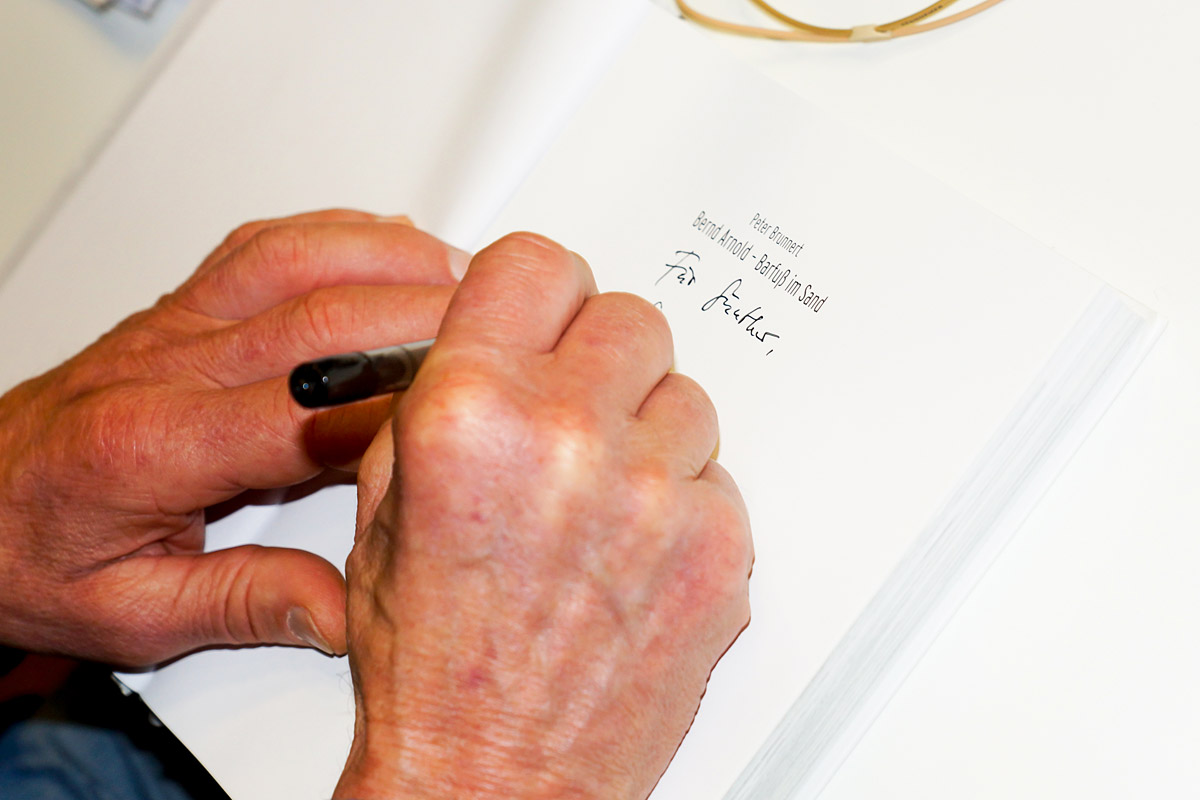 Peter Brunnert
Bernd Arnold - Barfuß im Sand
Für Günther,